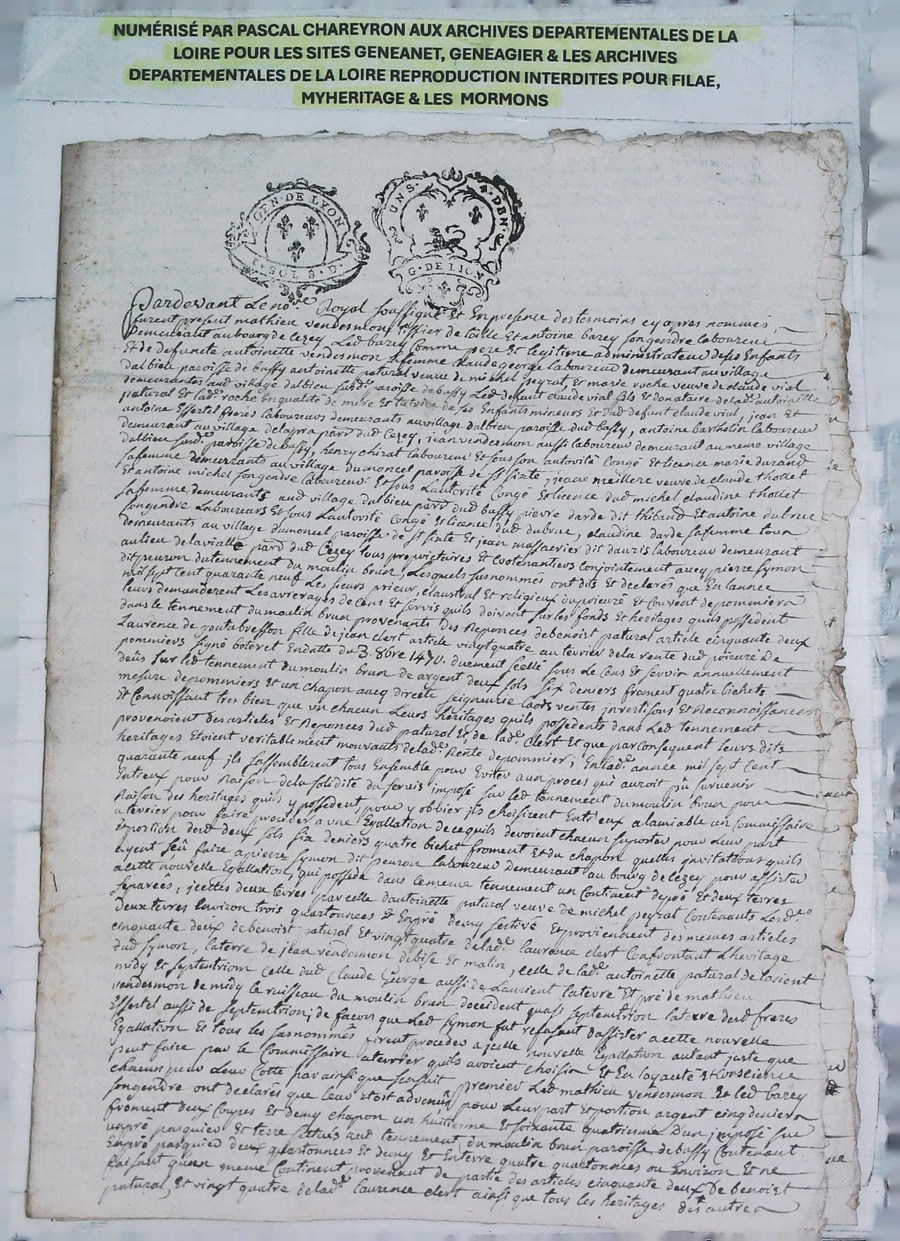 NUMÉRISÉ PAR PASCAL CHAREYRON AUX ARCHIVES DEPARTEMENTALES DE LA
LOIRE POUR LES SITES GENEANET, GENEAGIER & LES ARCHIVES
DEPARTEMENTALES DE LA LOIRE REPRODUCTION INTERDITES POUR FILAE,
MYHERITAGE & LES MORMONS
GEN · DE LYON
SOLS
UN S
G · DE LION
Pardevant Le no.re Royal soussigné Et En presence des tesmoins cy apres nommés
furent present mathieu vendesmon de toille Et antoine barey son gendre laboureur
Demeurant au bourg de Cezey Led barey Comme pere Et legitime administrateur de ses Enfants
Et de defuncte antoinette vendesmon sa femme Claude george Laboureur demeurant au village
dalbieu paroisse de bussy antoinette natural veuve de michel peyrat, Et marie roche veuve de claude vial
demeurantes aud village dalbieu susd.e paroisse de bussy Led defunt claude vial fils Et donataire de lad.e antoinette
natural Et lad.e roche En qualité de mere Et tutrice de ses Enfants mineurs Et dud defunt claude vial, jean Et
antoine Essertel freres laboureurs demeurants au village dalbieu paroisse dud bussy, antoine barthelin laboureur
demeurant au village de lapra parr dud Cezey, jean vendesmon aussi laboureur demeurant au meme village
dalbieu susd.e paroisse de bussy, henry chirat laboureur Et sous son autorité Congé Et licence marie durand
sa femme demeurants au village du moncel paroisse de st sixte, jeane meillere veuve de claude thollet
Et antoine michel son gendre laboureur Et sous Lautorité Congé Et licence dud michel claudine thollet
sa femme demeurants aud village dalbieu parr dud bussy pierre darde dit thibaud Et antoine dubrue
son gendre Laboureurs Et sous Lautorité Congé Et licence dud dubrue, claudine darde sa femme tous
demeurants au village dumoncel paroisse de st sixte Et jean massacrier dit dauris laboureur demeurant
au lieu de lavialle parr dud Cezey tous proprietaires et Cotenantiers Conjointement avec pierre symon
dit peuron du tennement du moulin brun, Lesquels susnommés ont dits Et declarés que En lannee
mil sept cent quarante neuf Les sieurs prieur, claustral Et religieux du prieuré Et Couvent de pommiers
leurs demanderent Les arrerages de Cens Et servis quils doivent sur les fonds Et heritages quils possedent
dans le tennement du moulin brun provenants Des Reponces de benoist natural article cinquante deux
Laurence de goutebresson fille de jean clert article vingt quatre au terrier de la rente dud prieuré De
pommiers signé boteret Endatte du 3. 8bre 1470. duement scellé sous le Cens Et servoir annuellement
deüs sur led tennement du moulin brun de argent deux sols six deniers froment quatre bichets
mesure de pommiers Et un chapon avec directe seigneurie laods ventes investisons Et Reconnoissances
Et Connoissant tres bien que un chacun Leurs heritages quils possedents dans Led tennement
provenoient des articles Et Reponces dud natural Et de lad.e Clert Et que par consequent leurs dits
heritages Etoient veritablement mouvants de lad.e Rente de pommier; En lad.e année mil sept cent
quarante neuf ils sassemblerent tous Ensemble pour Eviter a un proces qui auroit pü survenir
Entieux pour Raison de la solidité du servis imposé sur led tennement du moulin brun pour
Raison des heritages quils y possedent, pour y obbier ils choisirent Entr'eux a lamiable un Commissaire
a terrier pour faire proceder a une Egallation de ce quils devoient chacun suporter pour leur part
Et portion desd deux sols six deniers quatre bichet froment Et du chapon quelles invitations quils
ayent sçû faire a pierre Symon dit peuron laboureur demeurant au bourg de cezey pour assister
a cette nouvelle Egallation, qui possede dans ce meme tennement un Continent de pré Et deux terres
separées, jcelles deux terres par celle dantoinette natural veuve de michel peyrat Contenants Lesd.es
Deux terres Environ trois quartonnees Et Enpré demy sertive Et proviennent des memes articles
cinquante deux de benoist natural Et vingt quatre de lad.e laurence clert Confrontant Lheritage
dud symon, la terre de jean vendesmon de bise Et matin, celle de lad.e antoinette natural de la sient
midy Et septentrion Celle dud Claude George aussi de Laurient laterre Et pré de mathieu
vendesmon de midy le ruisseau du moulin brun doccident quasi septentrion laterre desd freres
Essertel aussi de septentrion; de facon que Led symon fut refusant dassister a cette nouvelle
Egallation Et tous les susnommés firent proceder a jcelle nouvelle Egallation autant juste que
peut faire par le Commissaire a terrier quils avoient choisir Et En loyauté Et Conscience
chacun pour Leur Cotte par ainsi que sensuit premier Led mathieu vendesmon Et led barey
son gendre ont declarés que leur Etoit advenir pour Leur part Et portion argent cinq deniers
froment deux Coupes Et demy chapon un huitieme Et soixante quatriesme d'un imposé sur
un pré pasquier Et terre situés aud tennement du moulin brun paroisse de bussy Contenant
Enpré pasquier deux quartonnees Et demy Et Enterre quatre quartonnées ou Environ Et ne
faisant quun meme Continent provenant de partie des articles cinquante deux De benoist
natural, Et vingt quatre de lad.e laurence clert ainsi que tous les heritages des autres